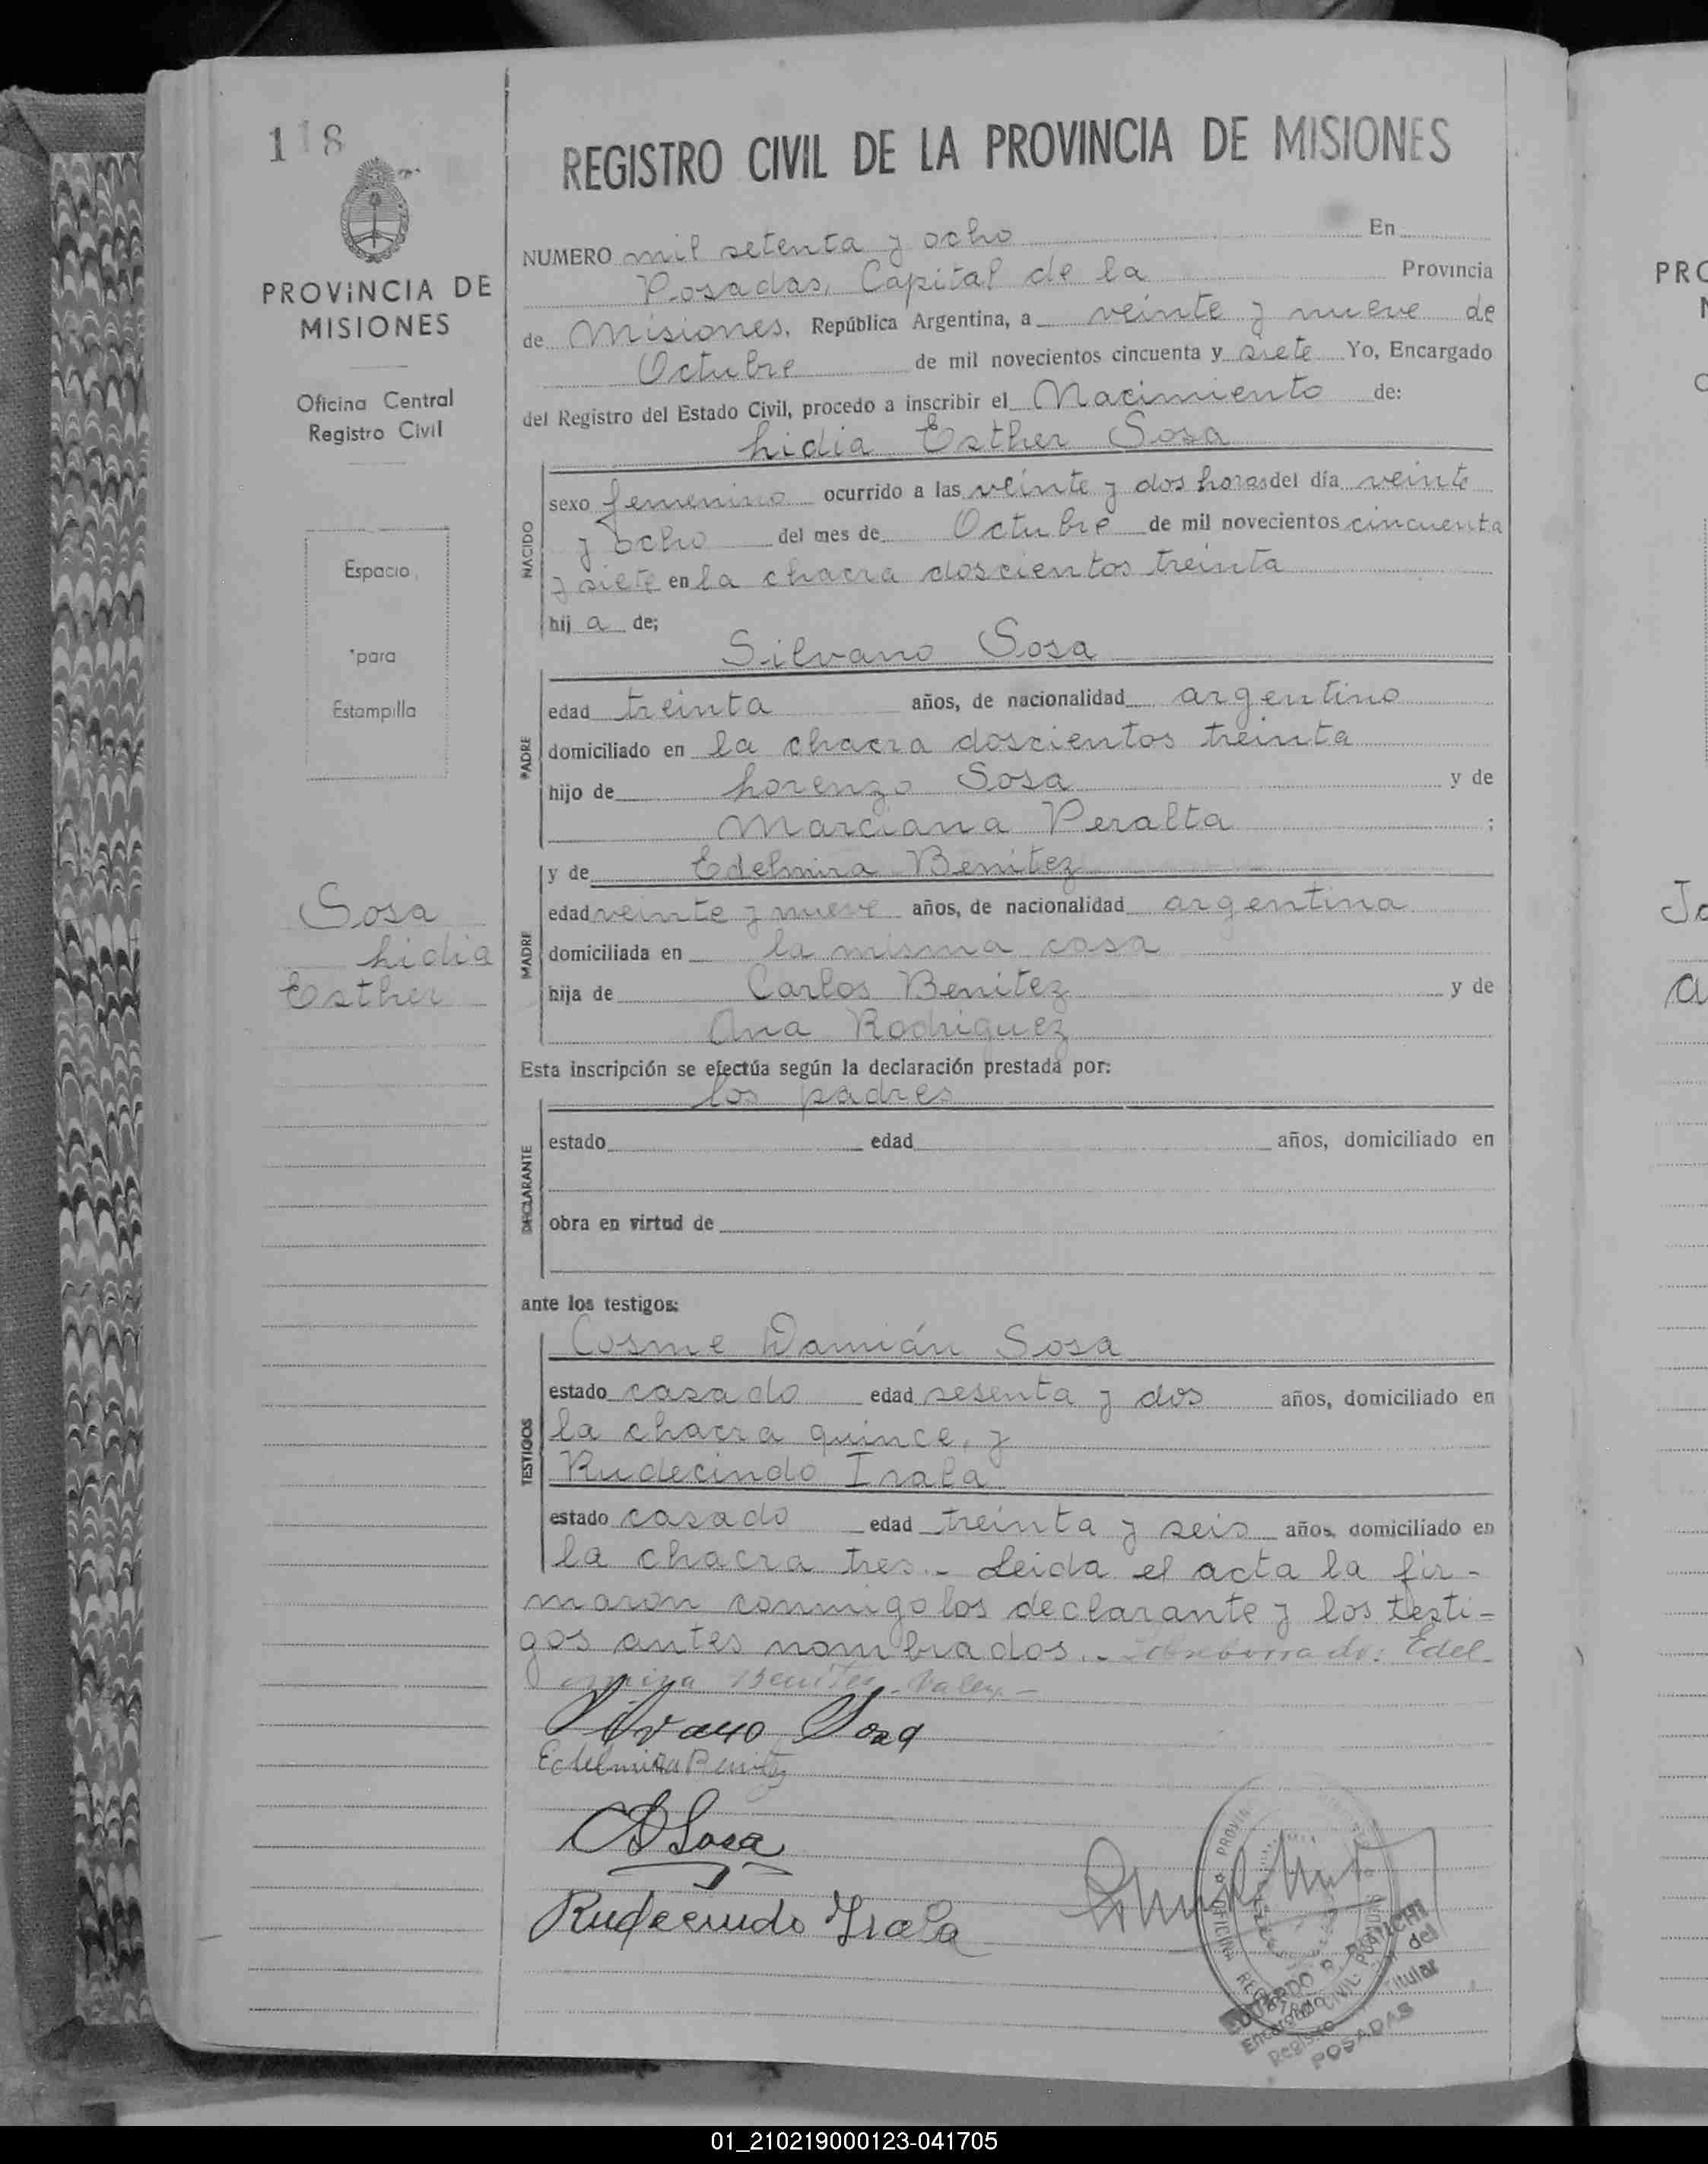 118
PROVINCIA DE
MISIONES
Oficina Central
Registro Civil
Espacio
para
Estampilla
Sosa
Lidia
Esther
REGISTRO CIVIL DE LA PROVINCIA DE MISIONES
NUMERO mil setenta y ocho En
Posadas, Capital de la Provincia
de Misiones, República Argentina, a veinte y nueve de
Octubre de mil novecientos cincuenta y siete Yo, Encargado
del Registro del Estado Civil, procedo a inscribir el Nacimiento de:
Lidia Esther Sosa
NACIDO
sexo femenino ocurrido a las veinte y dos horas del día veinte
y ocho del mes de Octubre de mil novecientos cincuenta
y siete en la chacra doscientos treinta
hij a de;
Silvano Sosa
PADRE
edad treinta años, de nacionalidad argentino
domiciliado en la chacra doscientos treinta
hijo de Lorenzo Sosa y de
Marciana Peralta ;
y de Edelmira Benítez
MADRE
edad veinte y nueve años, de nacionalidad argentina
domiciliada en la misma casa
hija de Carlos Benítez y de
Ana Rodríguez
Esta inscripción se efectúa según la declaración prestada por:
los padres
DECLARANTE
estado edad años, domiciliado en
obra en virtud de
ante los testigos:
Cosme Damián Sosa
TESTIGOS
estado casado edad sesenta y dos años, domiciliado en
la chacra quince, y
Rudecindo Irala
estado casado edad treinta y seis años, domiciliado en
la chacra tres.- Leida el acta la fir-
maron conmigo los declarante y los testi-
gos antes nombrados.- Sobreborrado: Edel-
mira Benítez-Valen-
Silvano Sosa
Edelmira Benitez
CDSosa
Rudecindo Irala
OFICINA REGISTRO CIVIL POSADAS
EDUARDO R.
Encargado Titular del
Registro
POSADAS
PRO
01_210219000123-041705